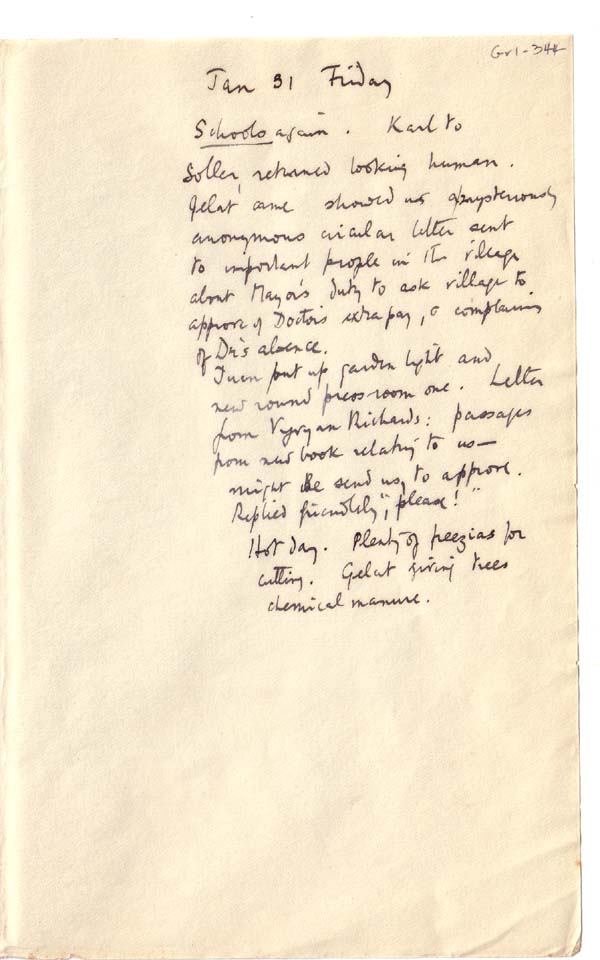 Gr1-344
Jan 31 Friday
Schools again. Karl to
Soller, returned looking human.
Gelat came showed us mysteriously
anonymous circular letter sent
to important people in the village
about Mayor's duty to ask village to
approve of Doctor's extra pay, & complaining
of Dr's absence.
Juan put up garden light and
new round press-room one. Letter
from Vyvyan Richards: passages
from new book relating to us—
might he send us, to approve.
Replied friendlily, "please!"
Hot day. Plenty of freezias for
cutting. Gelat giving trees
chemical manure.